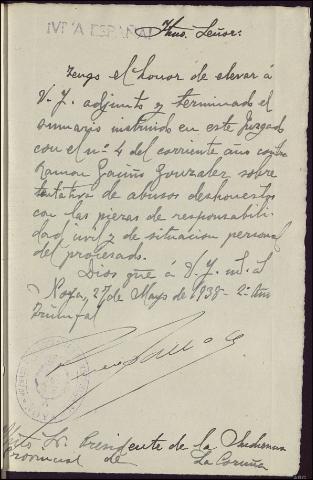 ¡VIVA ESPAÑA!
Ilmo. Señor:
Tengo el honor de elevar á
V. I. adjunto y terminado el
sumario instruido en este Juzgado
con el nº 4 del corriente año contra
Ramon Gauño Gonzalez sobre
tentativa de abusos deshonestos
con las piezas de responsabili-
dad civil y de situacion personal
del procesado.
Dios gue á V. I. m. a
Noya, 27 de Mayo de 1938 - 2º Año
Triunfal
Ilmo Sr. Presidente de la Audiencia
Provincial de La Coruña